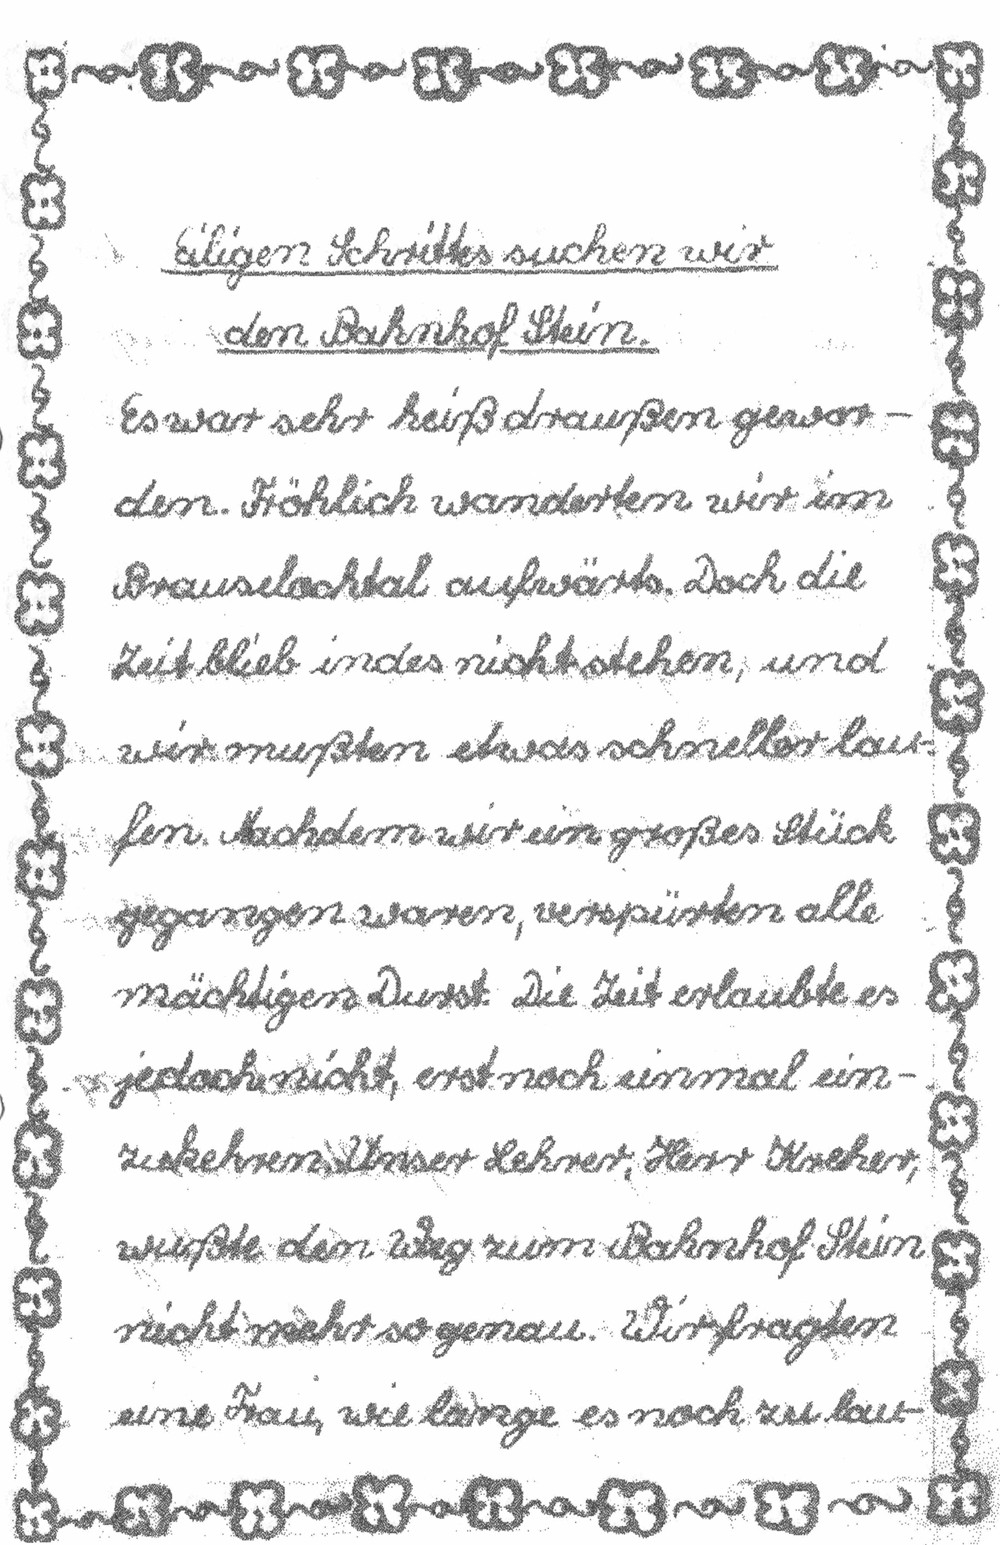 Eiligen Schrittes suchen wir
den Bahnhof Stein.
Es war sehr heiß draußen gewor-
den. Fröhlich wanderten wir im
Brauselochtal aufwärts. Doch die
Zeit blieb indes nicht stehen, und
wir mußten etwas schneller lau-
fen. Nachdem wir ein großes Stück
gegangen waren, verspürten alle
mächtigen Durst. Die Zeit erlaubte es
jedoch nicht, erst noch einmal ein-
zukehren. Unser Lehrer, Herr Kreher,
wußte den Weg zum Bahnhof Stein
nicht mehr so genau. Wir fragten
eine Frau, wie lange es noch zu lau-